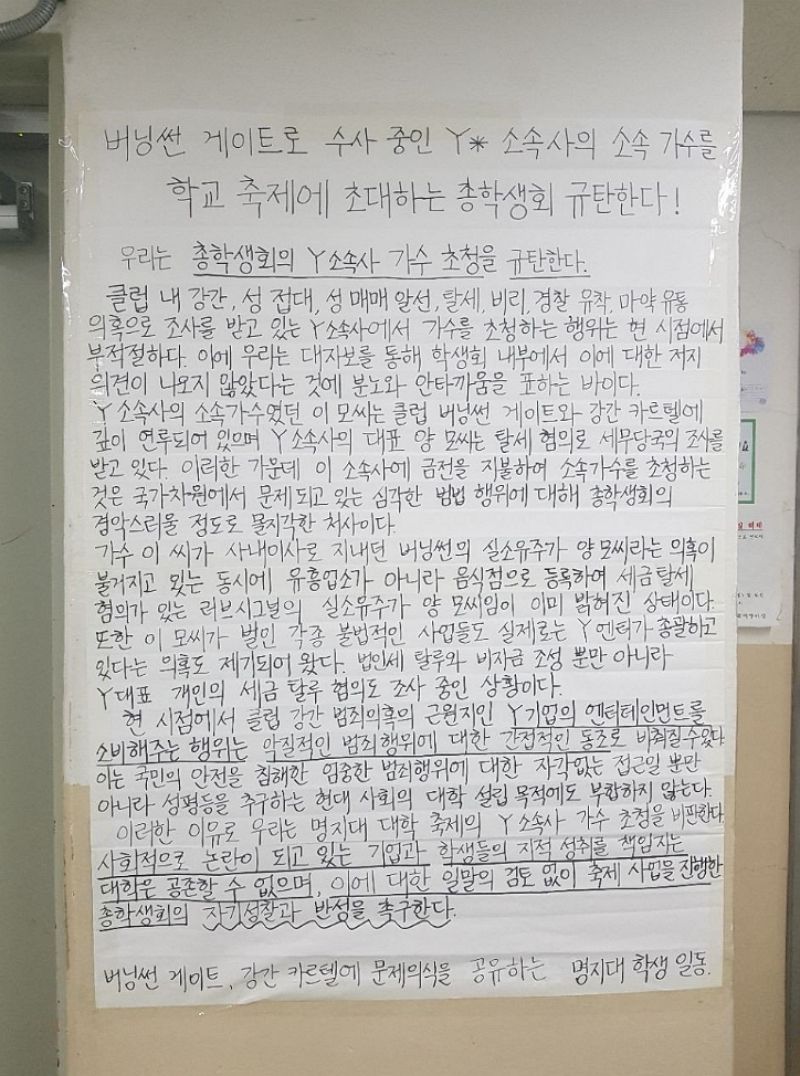 버닝썬 게이트로 수사 중인 Y* 소속사의 소속 가수를
학교 축제에 초대하는 총학생회 규탄한다!
우리는 총학생회의 Y소속사 가수 초청을 규탄한다.
클럽 내 강간, 성 접대, 성 매매 알선, 탈세, 비리, 경찰 유착, 마약 유통
의혹으로 조사를 받고 있는 Y소속사에서 가수를 초청하는 행위는 현 시점에서
부적절하다. 이에 우리는 대자보를 통해 학생회 내부에서 이에 대한 저지
의견이 나오지 않았다는 것에 분노와 안타까움을 표하는 바이다.
Y소속사의 소속가수였던 이 모씨는 클럽 버닝썬 게이트와 강간 카르텔에
깊이 연루되어 있으며 Y소속사의 대표 양 모씨는 탈세 혐의로 세무당국의 조사를
받고 있다. 이러한 가운데 이 소속사에 금전을 지불하여 소속가수를 초청하는
것은 국가차원에서 문제 되고 있는 심각한 범법 행위에 대해 총학생회의
경악스러울 정도로 몰지각한 처사이다.
가수 이 씨가 사내이사로 지내던 버닝썬의 실소유주가 양 모씨라는 의혹이
불거지고 있는 동시에 유흥업소가 아니라 음식점으로 등록하여 세금탈세
혐의가 있는 러브시그널의 실소유주가 양 모씨임이 이미 밝혀진 상태이다.
또한 이 모씨가 벌인 각종 불법적인 사업들도 실제로는 Y엔터가 총괄하고
있다는 의혹도 제기되어 왔다. 법인세 탈루와 비자금 조성 뿐만 아니라
Y대표 개인의 세금 탈루 혐의도 조사 중인 상황이다.
현 시점에서 클럽 강간 범죄의혹의 근원지인 Y기업의 엔터테인먼트를
소비해주는 행위는 악질적인 범죄행위에 대한 간접적인 동조로 비춰질 수 있다
이는 국민의 안전을 침해한 엄중한 범죄행위에 대한 자각없는 접근일 뿐만
아니라 성평등을 추구하는 현대 사회의 대학 설립 목적에도 부합하지 않는다.
이러한 이유로 우리는 명지대 대학 축제의 Y소속사 가수 초청을 비판한다.
사회적으로 논란이 되고 있는 기업과 학생들의 지적 성취를 책임지는
대학은 공존할 수 없으며, 이에 대한 일말의 검토 없이 축제 사업을 진행한
총학생회의 자기성찰과 반성을 촉구한다.
버닝썬 게이트, 강간 카르텔에 문제의식을 공유하는 명지대 학생 일동.